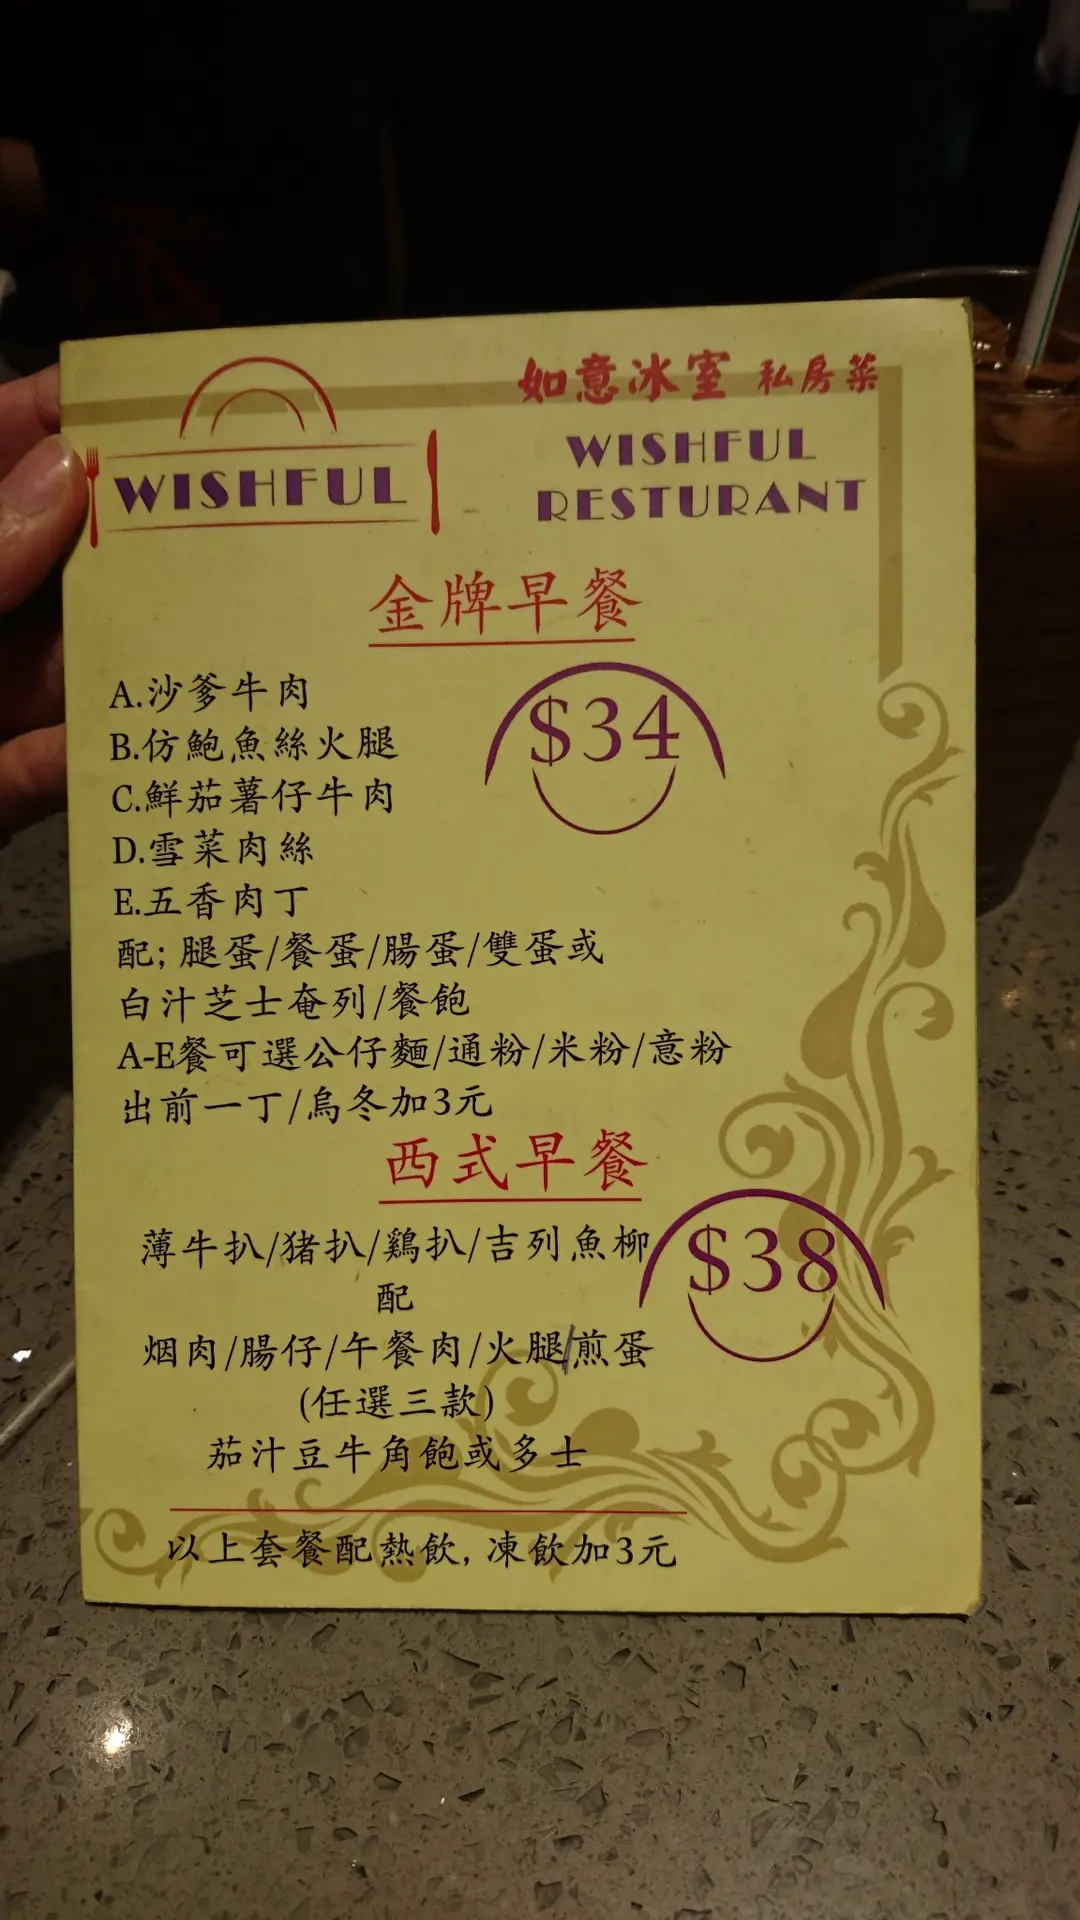 如意冰室 私房菜
WISHFUL
WISHFUL
RESTURANT
金牌早餐
$34
A.沙爹牛肉
B.仿鮑魚絲火腿
C.鮮茄薯仔牛肉
D.雪菜肉絲
E.五香肉丁
配; 腿蛋/餐蛋/腸蛋/雙蛋或
白汁芝士奄列/餐飽
A-E餐可選公仔麵/通粉/米粉/意粉
出前一丁/烏冬加3元
西式早餐
$38
薄牛扒/猪扒/鷄扒/吉列魚柳
配
烟肉/腸仔/午餐肉/火腿/煎蛋
(任選三款)
茄汁豆牛角飽或多士
以上套餐配熱飲, 凍飲加3元